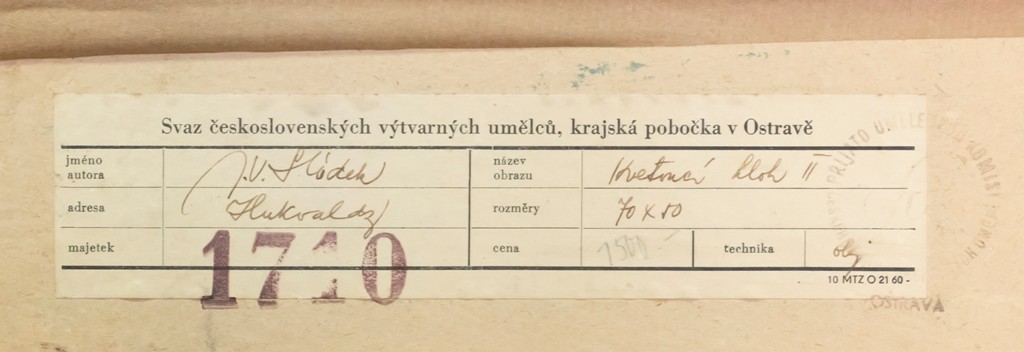 Svaz československých výtvarných umělců, krajská pobočka v Ostravě
jméno autora J.V. Sládek
název obrazu Kvetoucí hloh II
adresa Hukvaldy
rozměry 70 x 50
majetek 1710
cena 1500 -
technika olej
10 MTZ O 21 60 -
PŘIJATO UMĚLECKOU KOMISÍ
OSTRAVA